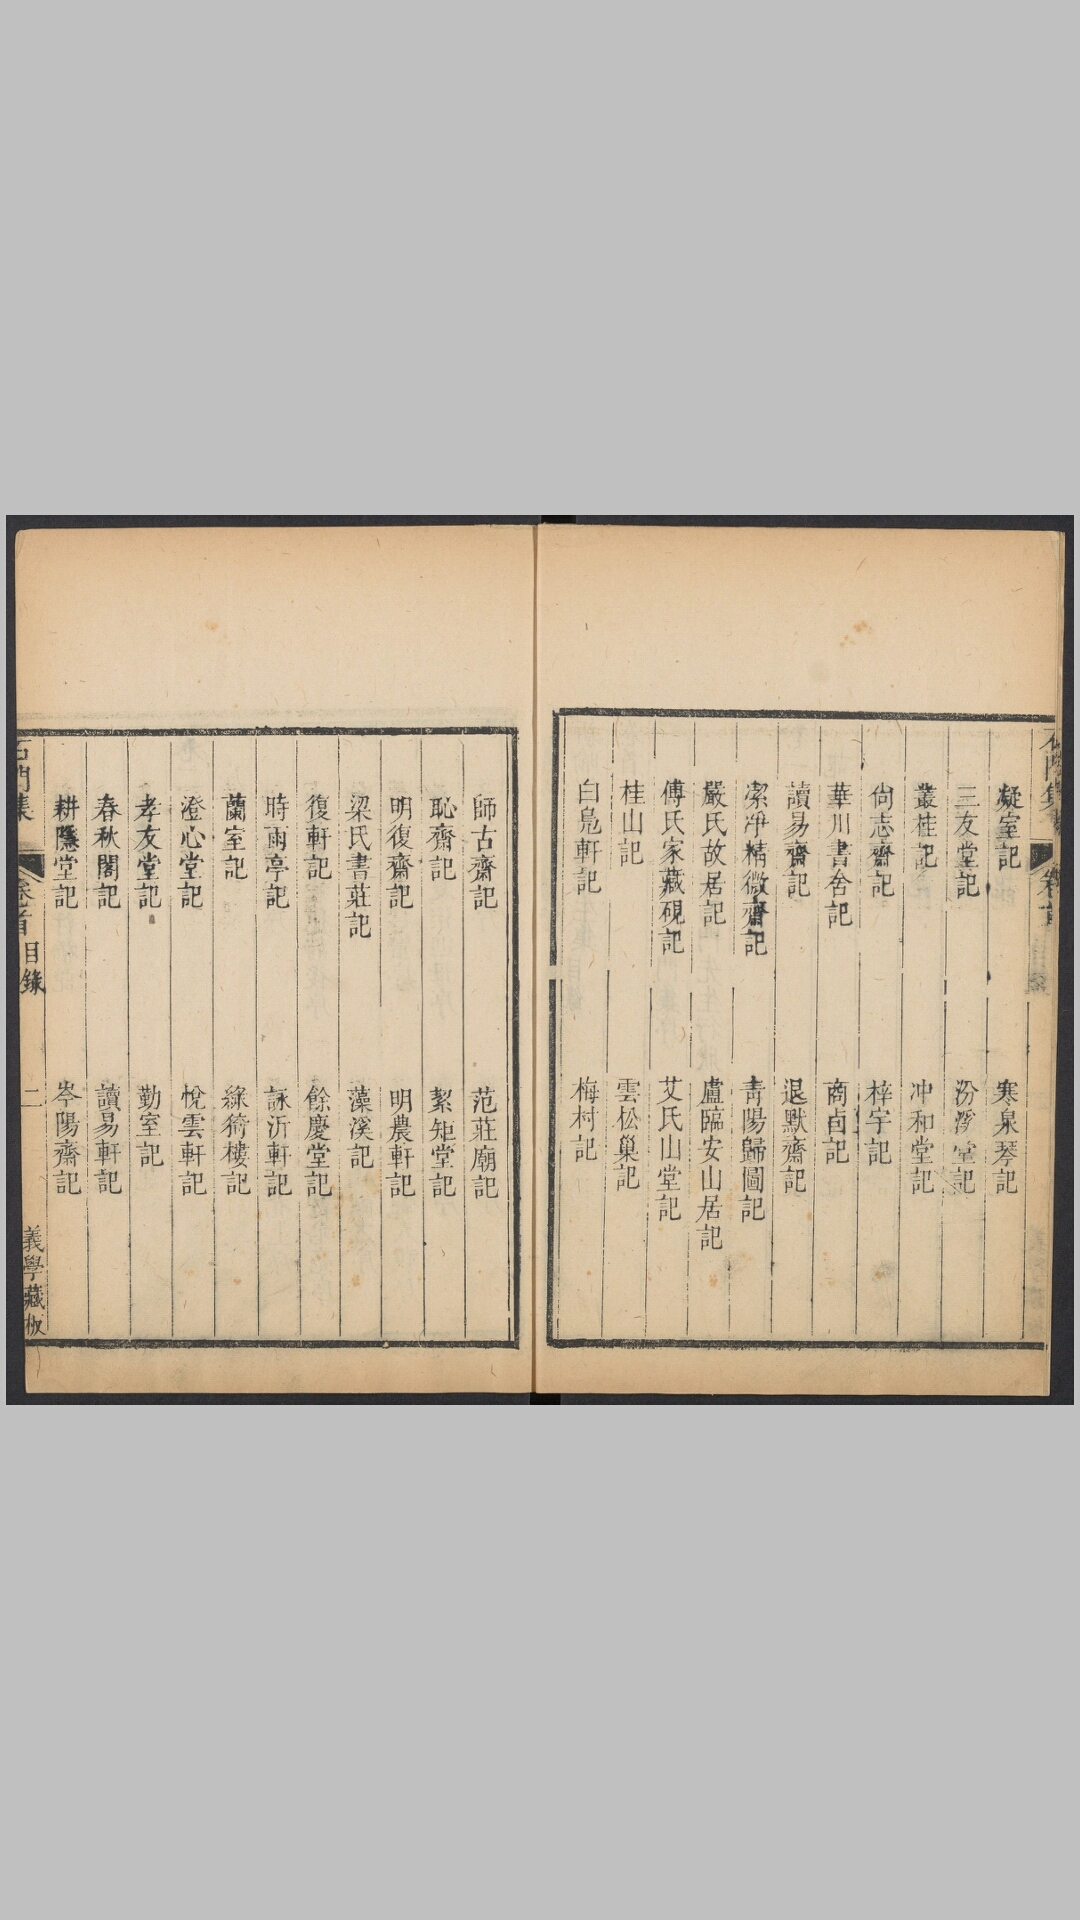 凝室記 寒泉琴記
三友堂記 汾淨堂記
叢桂記 冲和堂記
尙志齋記 梓字記
華川書舍記 商卣記
讀易齋記 退默齋記
潔淨精微齋記 靑陽歸圖記
嚴氏故居記 盧臨安山居記
傅氏家藏硯記 艾氏山堂記
桂山記 雲松巢記
白鳧軒記 梅村記
師古齋記 范莊廟記
恥齋記 絜矩堂記
明復齋記 明農軒記
梁氏書莊記 藻溪記
復軒記 餘慶堂記
時雨亭記 詠沂軒記
蘭室記 綠猗樓記
澄心堂記 悅雲軒記
孝友堂記 勤室記
春秋閣記 讀易軒記
耕隱堂記 岑陽齋記
石門集 卷首 目錄 二 義學藏板